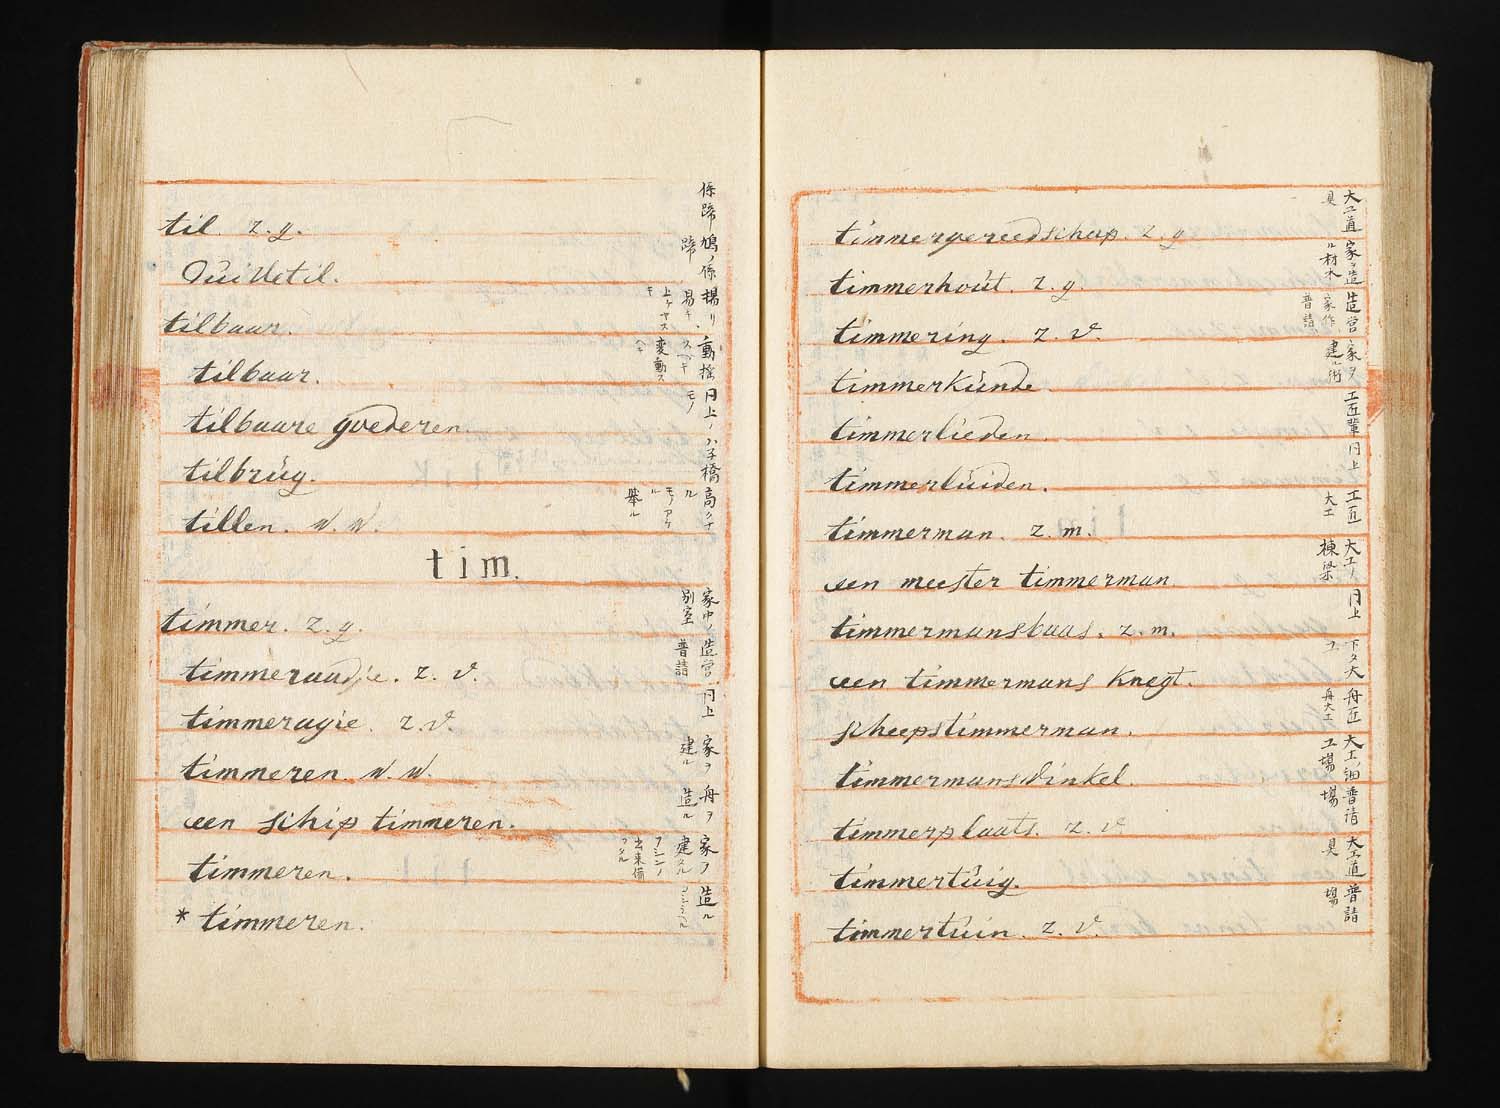 til z. g.
係蹄
Duivetil.
鳩ノ係蹄
tilbaar
揚リ易キ 上ケヤスキ
tilbaar.
動揺スヘキ 変動スヘキ
tilbaare goederen.
円上ノモノ
tilbrug.
ハ子橋
tillen. w. w.
挙ル
tim.
timmer. z. g.
家中ノ別室
timmeraadje. z. v.
造営 普請
timmeragie. z. v.
円上
timmeren. w. w.
家ヲ建ル
een schip timmeren.
舟ヲ造ル
timmeren.
家ヲ建タル
* timmeren.
造ル
timmergereedschap. z. g
大工道具
timmerhout. z. g.
家ヲ造ル材木
timmering. z. v.
造営 家作 普請
timmerkunde.
家ヲ建ル術
timmerlieden.
工匠輩
timmerluiden.
円上
timmerman. z. m.
工匠 大工
een meester timmerman
大工ノ棟梁
timmermansbaas. z. m.
円上
een timmermans knegt.
下タ大工
scheepstimmerman.
舟匠 舟大工
timmermanswinkel.
大工ノ細工場
timmerplaats. z. v
普請場
timmertuig.
大工道具
timmertuin. z. v.
普請場